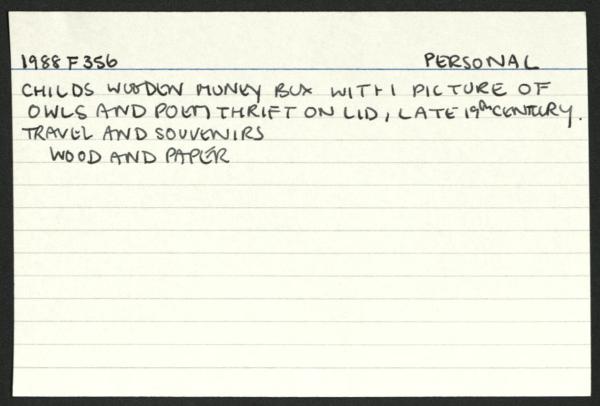 1988 F356 PERSONAL
CHILDS WOODEN MONEY BOX WITH PICTURE OF
OWLS AND POEM THRIFT ON LID, LATE 19th CENTURY.
TRAVEL AND SOUVENIRS
WOOD AND PAPER